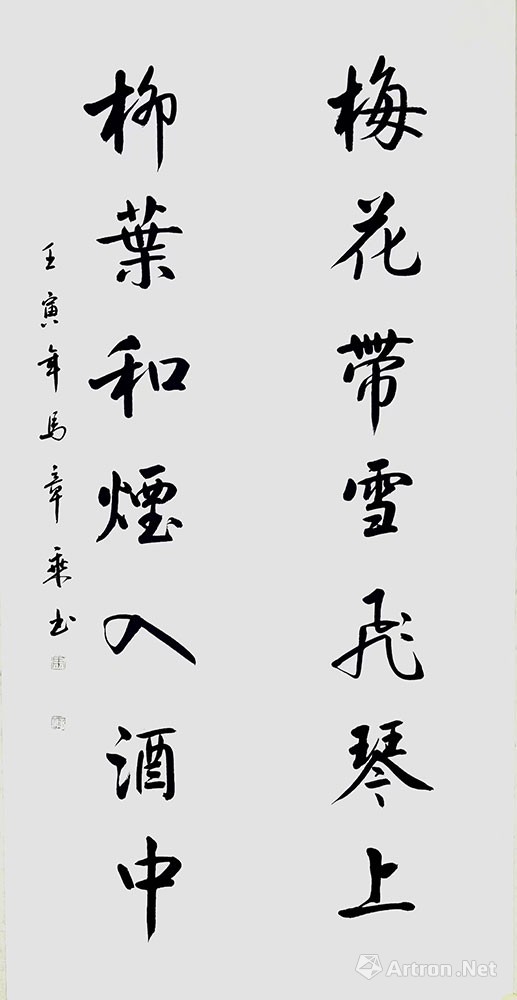 梅花帶雪飛琴上
柳葉和煙入酒中
壬寅年馬章乘书
Artron.Net